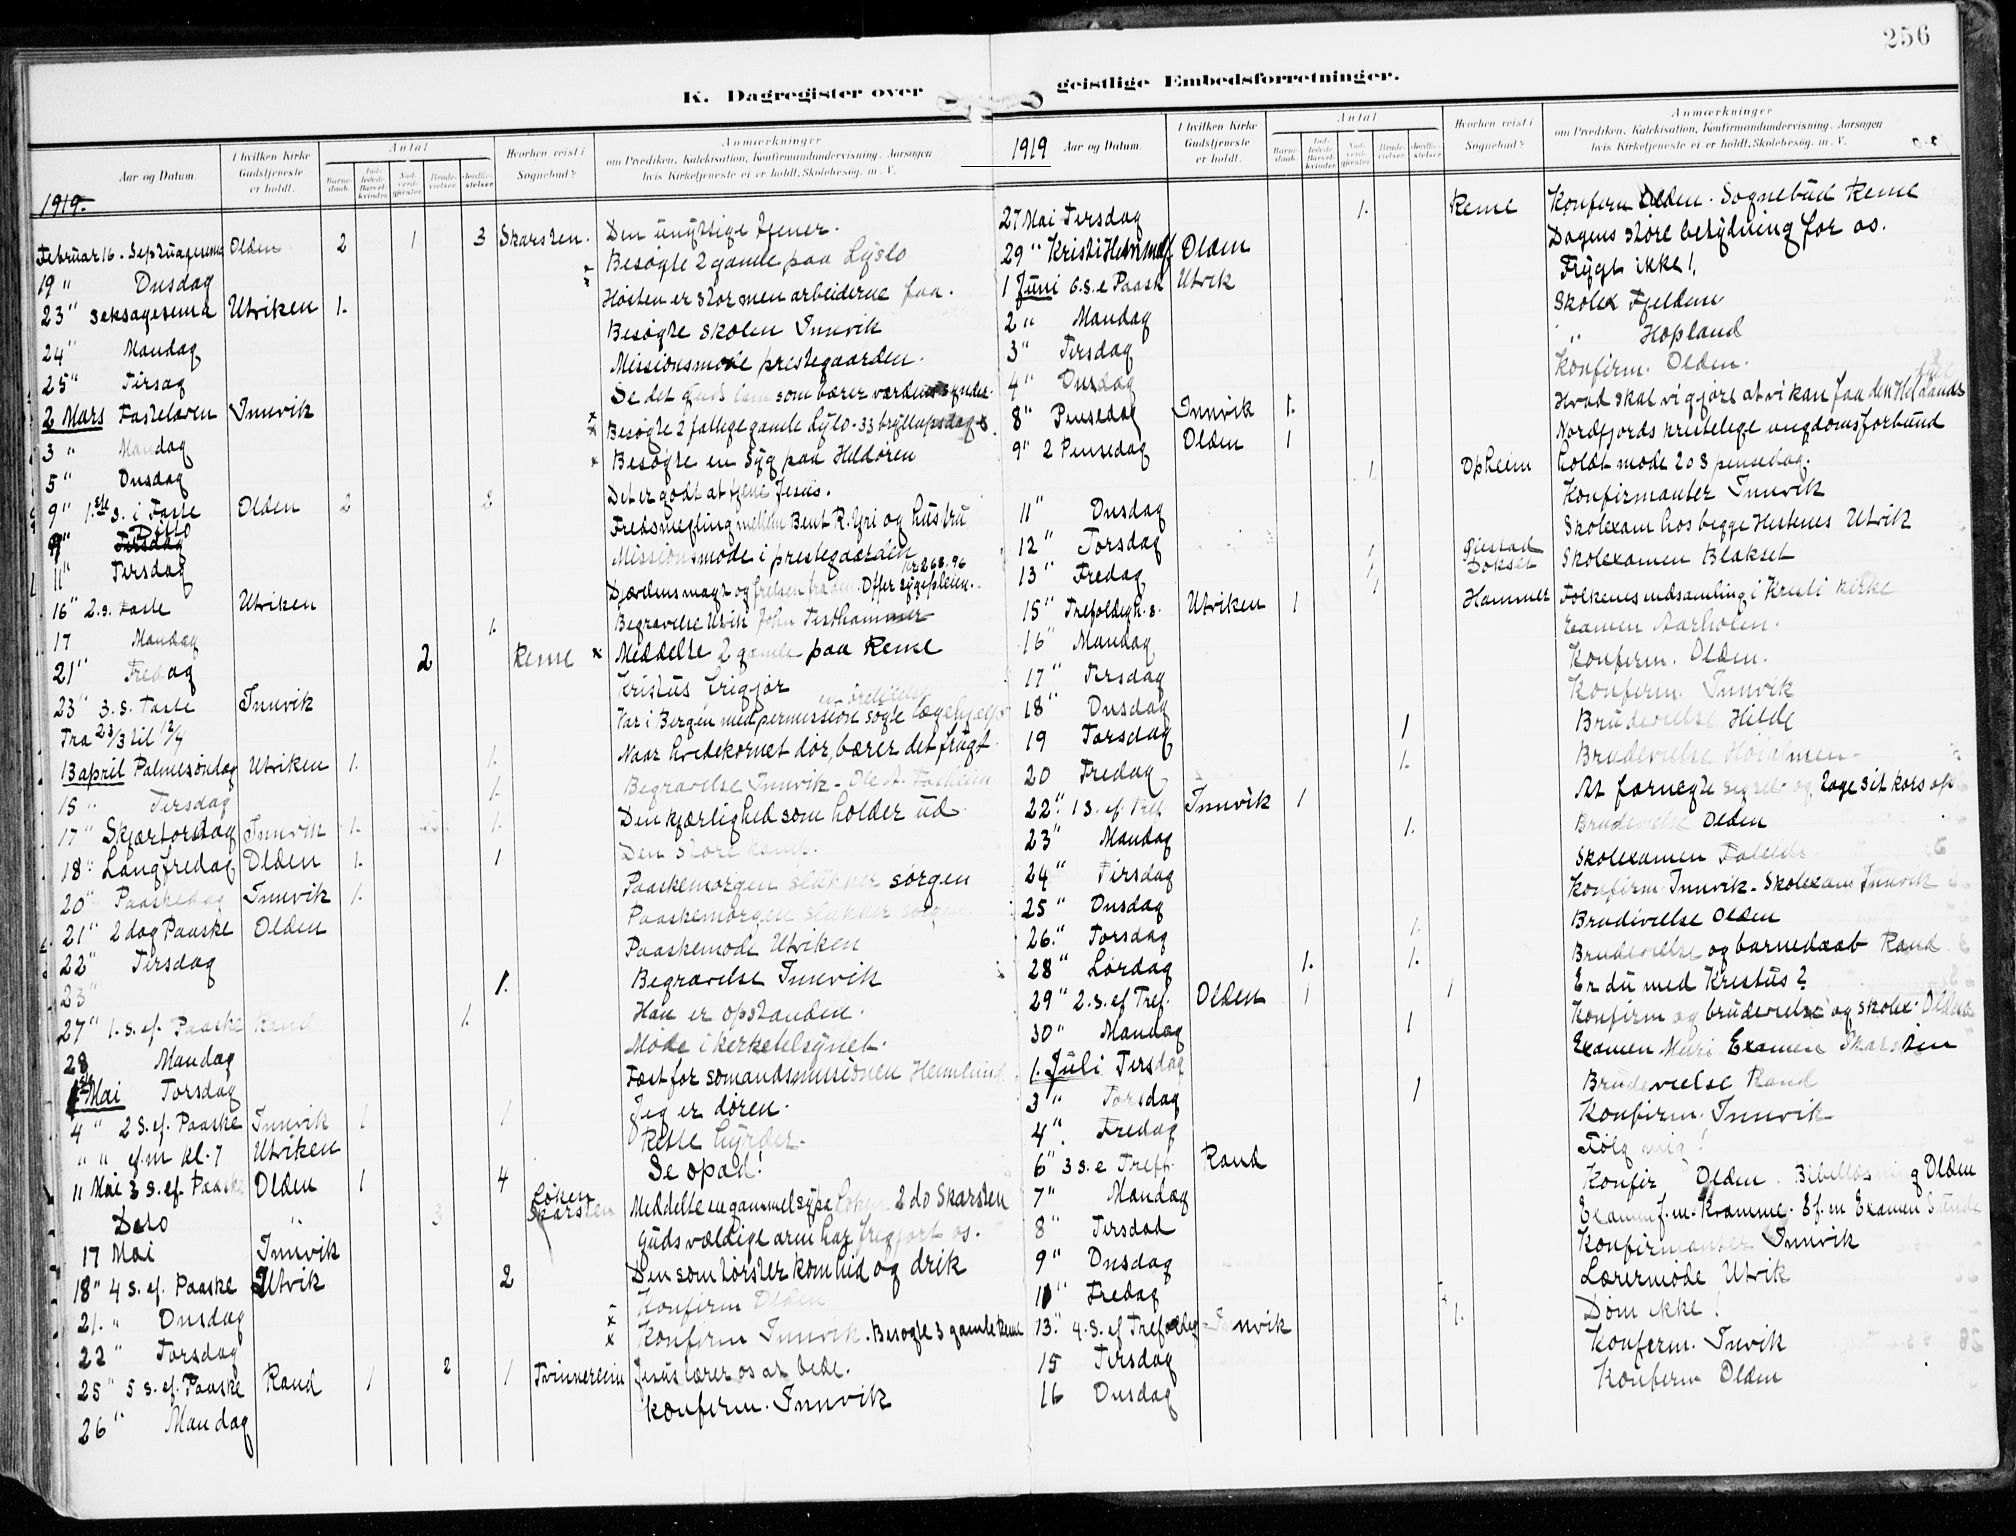 256
K. Dagregister over geistlige Embedsforretninger.
Aar og Datum. I hvilken Kirke Gudstjeneste er holdt. Antal Barnedaab. Indledede Barselkvinder Nadverdgjester Brudevielser Jordfæstelser Hvorhen reist i Sognebud? Anmærkninger om Prædiken, Katekisation, Konfirmandundervisning, Aarsagen hvis Kirketjeneste ei er holdt, Skolebesøg, m. V.
1919.
Februar 16. Septuagesima Olden 2 1 3 Skarsten. Den unyttige tjener.
19 " Onsdag Besøgte 2 gamle paa Lyslo
23 " Seksagesima Utviken 1. Høsten er stor men arbeiderne faa.
24 " Mandag Besøgte skolen Innvik
25 " Tirsag Missionsmøde prestegaarden.
2 Mars Fastelaven Innvik Se det Guds lam som bærer verdens synder.
3 " Mandag Besøgte 2 fattige gamle Lyslo - 33 bryllupsdag
5 " Onsdag Besøgte en syg paa Hildøren
9 " 1.ste s. i Faste Olden 2 2 Det er godt at tjene Jesus.
9 " Ditto Fredsmegling mellem Bent R. Yri og hustru
11 " Tirsdag Missionsmøde i prestegaarden
16 " 2. s. Faste Utviken Djævlens magt og frelsen fra den. Offer sygepleien. kr 268.96
17 Mandag 1. Begravelse Utvik John
21 " Fredag 2 Reme x Meddelte 2 gamle paa Reme
23 " 3. s. Faste Innvik Kristus frigjør
Fra 23/3 til 12/4 Var i Bergen med permission søgte lægehjælp
13 april Palmesøndag Utviken 1. 1. Naar hvedekornet dør, bærer det frugt.
15 " Tirsdag 1. Begravelse Innvik - Ole A.
17 " Skjærtorsdag Innvik 1. 1. Den kjærlighed som holder ud
18 " Langfredag Olden 1. 1 Den store kamp.
20 " Paaskedag Innvik 1. Paaskemorgen slukker sorgen
21 " 2 dag Paaske Olden Paaskemorgen slukker sorgen
22 " Tirsdag Paaskemøde Utviken
23 " 1. Begravelse Innvik
27 " 1. s. ef. Paaske Rand 1. Han er opstanden.
28 Mandag Møde i kirketilsynet.
1ste Mai Torsdag Fest for sømandsmissionen
4 " 2 s. ef. Paaske Innvik 1 1 Jeg er døren.
" " ef.m kl. 7 Utviken Rette hyrder.
11 Mai 3 s. ef. Paaske Olden 1 4 Se opad!
Dito " 3 Løken Skarsten Meddelte en gammel syge Løken 2 do Skarsten
17 Mai Innvik Guds vældige arm har frigjort os.
18 " 4 s. ef. Paaske Utvik 2 Den som tørster kom hid og drik
21. " Onsdag Konfirm Olden
22 " Torsdag Konfirm Innvik. Besøgte 3 gamle Reme
25 " 5 s. ef. Paaske Rand 1 2 1 Tvinnereim Jesus lærer os at bede.
26 " Mandag Konfirm. Innvik
1919 Aar og Datum. I hvilken Kirke Gudstjeneste er holdt. Antal Barnedaab. Indledede Barselkvinder Nadverdgjester Brudevielser Jordfæstelser Hvorhen reist i Sognebud? Anmærkninger om Prædiken, Katekisation, Konfirmandundervisning, Aarsagen hvis Kirketjeneste ei er holdt, Skolebesøg, m. V.
27 Mai Tirsdag 1. Reme Konfirm Olden. Sognebud Reme
29 " Kristi Himmelf Olden Dagens store betydning for os.
1 Juni 6. s. e Paask Utvik Frygt ikke!
2 " Mandag Skolex Fjelden
3 " Tirsdag " Hopland
4 " Onsdag Konfirm. Olden.
8 " Pinsedag Innvik 1. Hvad skal vi gjøre at vi kan faa den Hellaand
9 " 2 Pinsedag Olden 1 Nordfjords kristelige ungdomsforbund
1 Opheim holdt møde 2 o 3 pinsedag.
11 " Onsdag Konfirmanter Innvik
12 " Torsdag Skolexam hos begge Hestenes Utvik
13 " Fredag 1 Skolexamen Blakset
15 " Trefoldigh. s. Utviken 1 Hammer Folkenes indsamling i Kristi kirke
16 " Mandag Examen Aarholen.
17 " Tirsdag Konfirm. Olden.
18 " Onsdag Konfirm. Innvik
19 Torsdag 1 Brudevielse Hilde
20 Fredag 1. Brudevielse
22 " 1 S. ef. Tref. Innvik 1 At fornegte seg selv og tage sit kors op
23 " Mandag 1. Brudevielse Olden
24 " Tirsdag Skolexamen
25 " Onsdag Konfirm Innvik - Skolexam Innvik
26. " Torsdag 1. Brudevielse Olden
28 " Lørdag 1. 1. Brudevielse og barnedaab Rand
29 " 2. s. ef Tref. Olden 1 1 Er du med Kristus?
30 " Mandag 1 Konfirm og brudevielse og skolex. Olden
1. Juli Tirsdag Examen Muri Examen Skarsten
3 " Torsdag 1 Brudevielse Rand
4 " Fredag Konfirm. Innvik
6 " 3 s. e Tref. Rand Følg mig!
7 " Mandag Konfir Olden. Bibellæsning Olden
8 " Tirsdad Examen f.m. Kramme. Ef.m Examen
9 " Onsdag Konfirmanter Innvik
11 " Fredag Lærermøde Utvik
13. " 4. S. ef Trefoldig Innvik 1. Døm ikke!
15 Tirsdag Konfirm. Invik
16 Onsdag Konfirm Olden